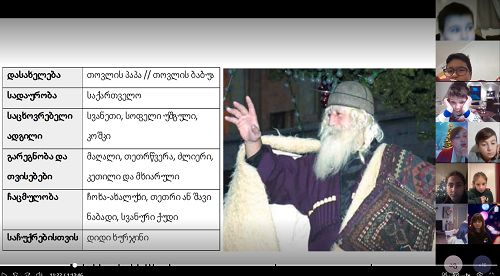 დასახელება თოვლის პაპა // თოვლის ბაბუა
სადაურობა საქართველო
საცხოვრებელი ადგილი სვანეთი, სოფელი უშგული, კოშკი
გარეგნობა და თვისებები მაღალი, თეთრწვერა, ძლიერი, კეთილი და მხიარული
ჩაცმულობა ჩოხა-ახალუხი, თეთრი ან შავი ნაბადი, სვანური ქუდი
საჩუქრებისთვის დიდი ხურჯინი